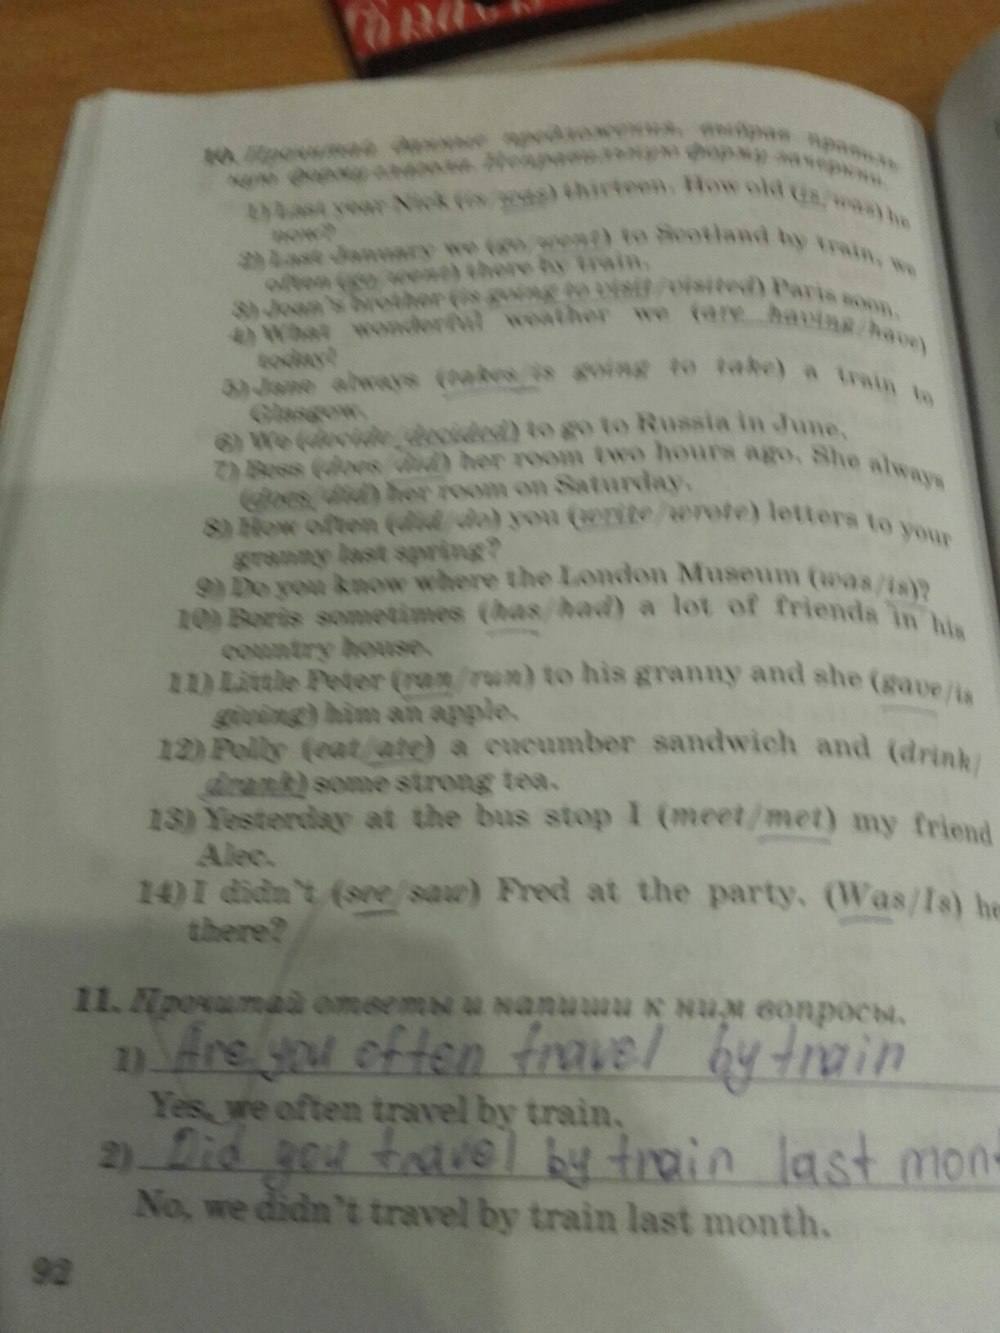 10. Прочитай данные предложения, выбрав правиль-
ную форму глагола. Неправильную форму зачеркни.
1) Last year Nick (is/was) thirteen. How old (is/was) he
now?
2) Last January we (go/went) to Scotland by train, we
often (go/went) there by train.
3) Joan's brother (is going to visit/visited) Paris soon.
4) What wonderful weather we (are having/have)
today!
5) Jane always (takes/is going to take) a train to
Glasgow.
6) We (decide/decided) to go to Russia in June.
7) Bess (does/did) her room two hours ago. She always
(does/did) her room on Saturday.
8) How often (did/do) you (write/wrote) letters to your
granny last spring?
9) Do you know where the London Museum (was/is)?
10) Boris sometimes (has/had) a lot of friends in his
country house.
11) Little Peter (ran/run) to his granny and she (gave/is
giving) him an apple.
12) Polly (eat/ate) a cucumber sandwich and (drink/
drank) some strong tea.
13) Yesterday at the bus stop I (meet/met) my friend
Alec.
14) I didn't (see/saw) Fred at the party. (Was/Is) he
there?
11. Прочитай ответы и напиши к ним вопросы.
1) Are you often travel by train
Yes, we often travel by train.
2) Did you travel by train last mont
No, we didn't travel by train last month.
92